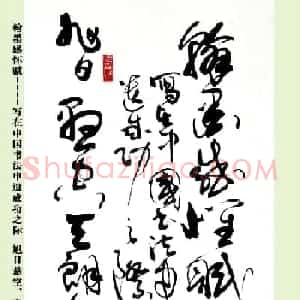 翰墨感怀赋
写在中国书法申
遗成功之际
旭日悬空天朗
翰墨感怀赋——写在中国书法申遗成功之际 旭日悬空，
Shufazhijia.com